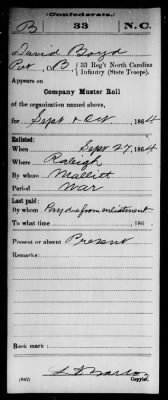 (Confederate.)
B 33 N.C.
David Boyd
Pvt, B, 33 Reg't North Carolina
Infantry (State Troops).
Appears on
Company Muster Roll
of the organization named above,
for Sept & Oct, 1864
Enlisted:
When Sept 27, 1864
Where Raleigh
By whom Mallitt
Period War
Last paid:
By whom from enlistment
To what time , 186
Present or absent Present
Remarks:
Book mark:
(642)
Copyist.